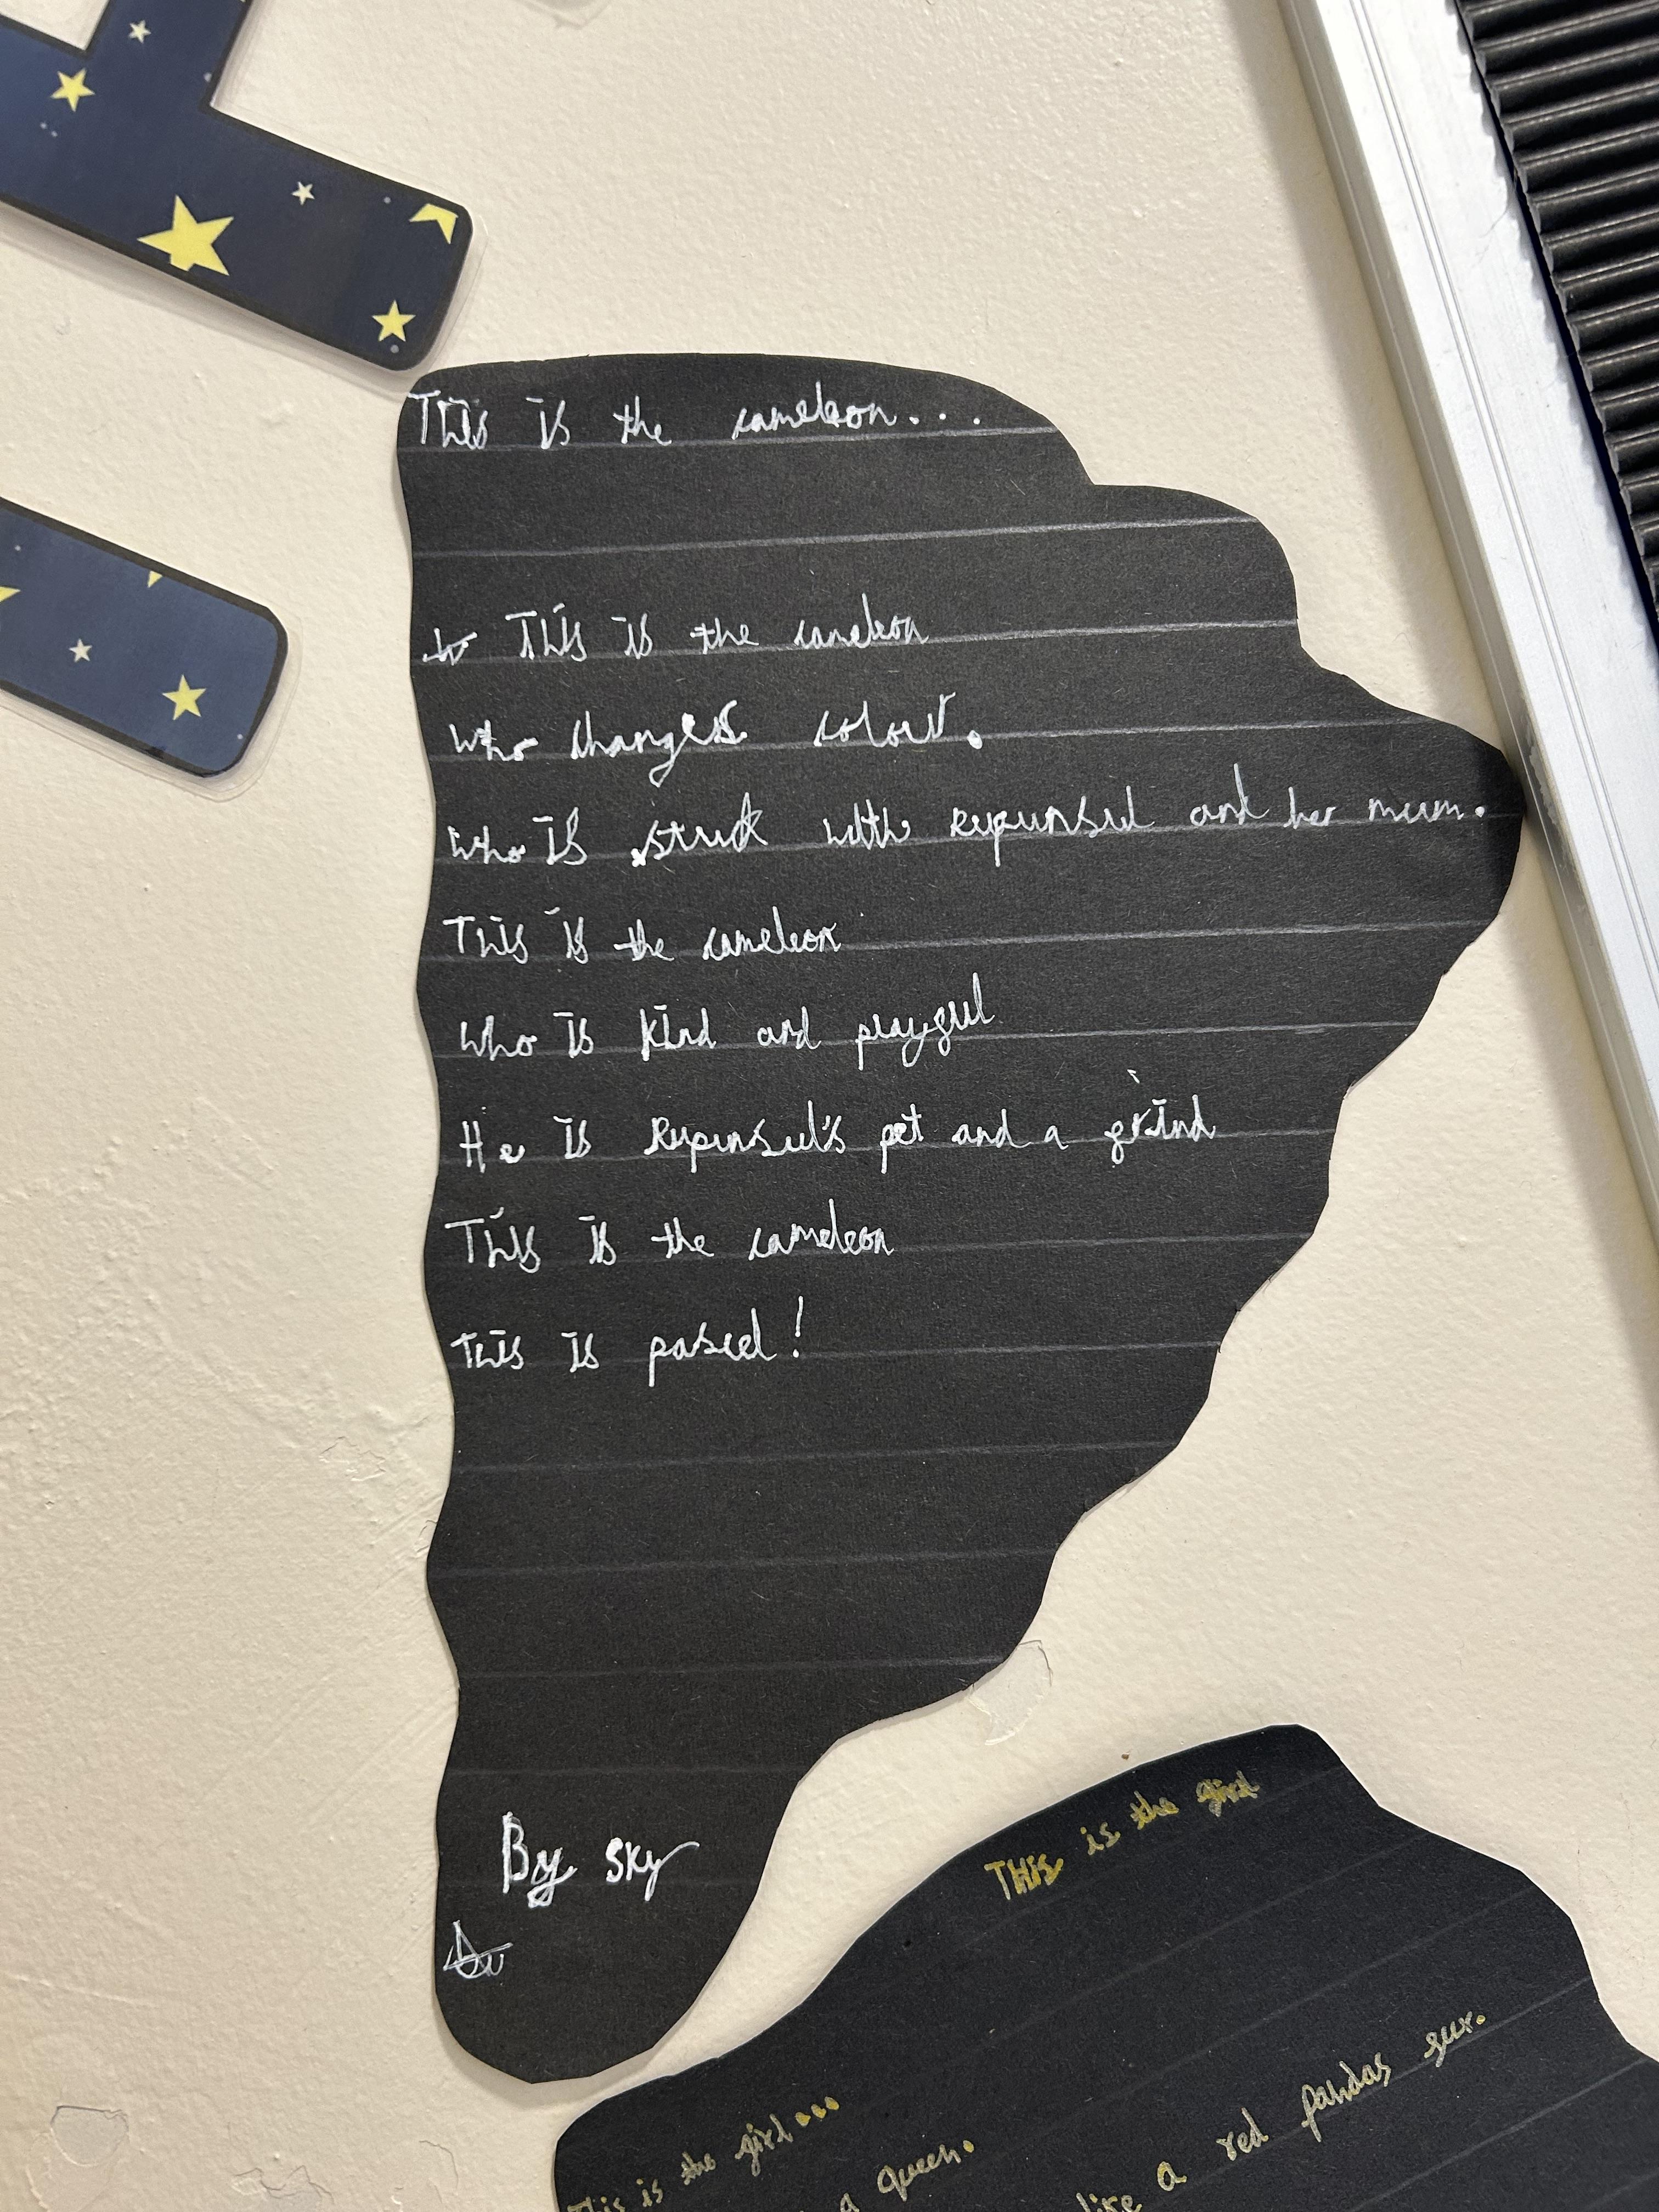 This is the cameleon...
This is the cameleon
who changes colour.
who is stuck with repunsul and her mum.
This is the cameleon
who is kind and playful
He is Repunsul's pet and a frind
This is the cameleon
This is pascel!
By sky
This is the girl
This is the girl...
a queen.
like a red pandas fur.